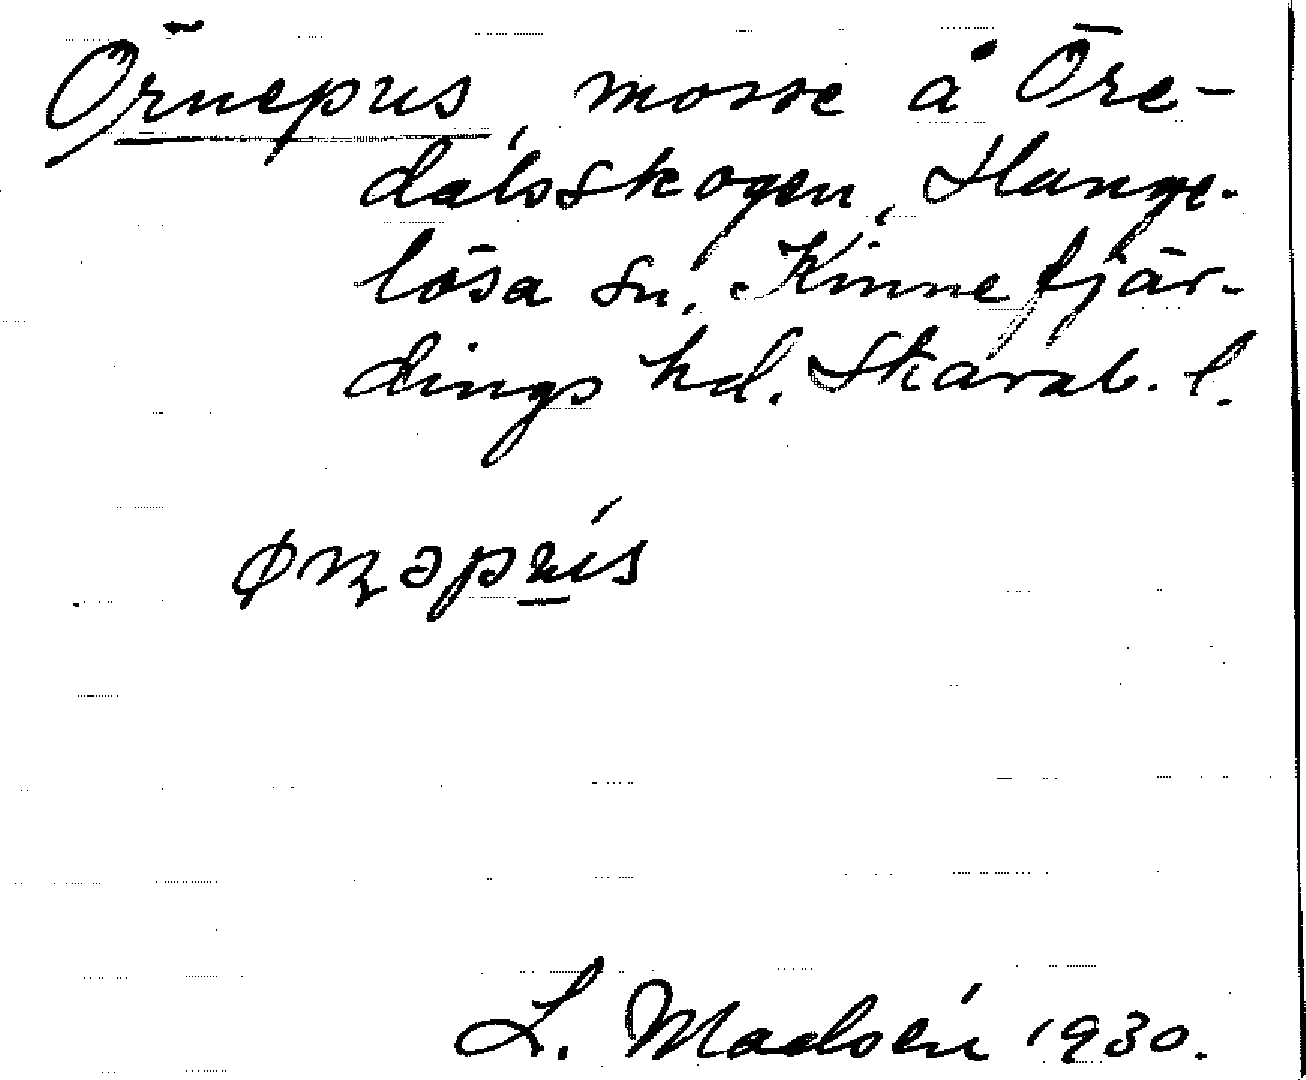 Örnepus, mosse å Öre-
dalsskogen, Hange-
lösa sn, Kinnefjär-
dings hd. Skarab. l.
L. Madsén 1930.